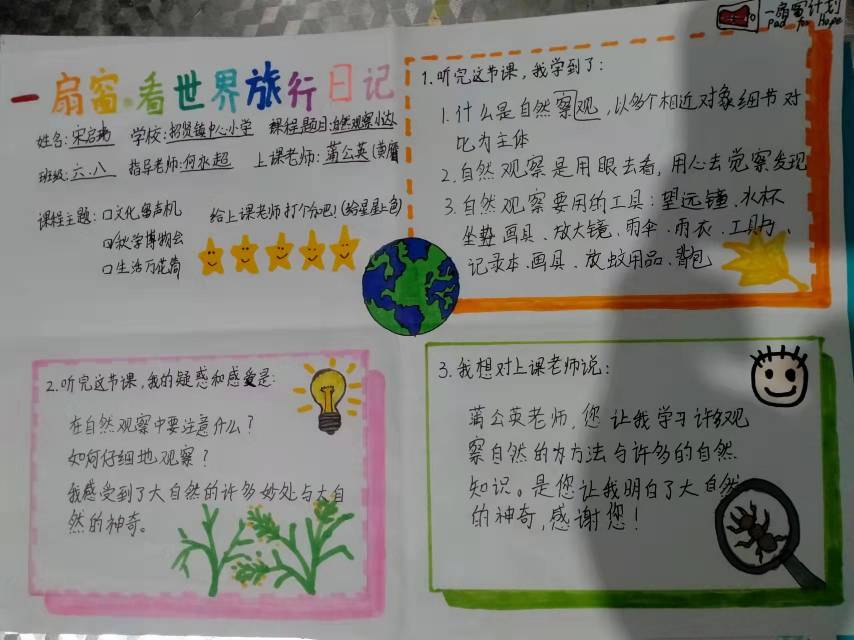 一扇窗计划
Pad for Hope
一扇窗·看世界旅行日记
姓名:宋启 学校:招贤镇中心小学 课程题目:自然观察小达人
班级:六.八 指导老师:何永超 上课老师:蒲公英
课程主题:□文化留声机 给上课老师打个分吧!(给星星上色)
科学博物会
□生活万花筒
1.听完这节课,我学到了:
1.什么是自然察观,以多个相近对象细节对
比为主体
2.自然观察是用眼去看,用心去觉察发现
3.自然观察要用的工具:望远镜、水杯
坐垫、画具、放大镜、雨伞、雨衣、工具
记录本、画具、放蚊用品、背包
2.听完这节课,我的疑惑和感受是:
在自然观察中要注意什么?
如何仔细地观察?
我感受到了大自然的许多妙处与大自
然的神奇。
3.我想对上课老师说:
蒲公英老师,您让我学习许多观
察自然的方法与许多的自然
知识。是您让我明白了大自然
的神奇,感谢您!